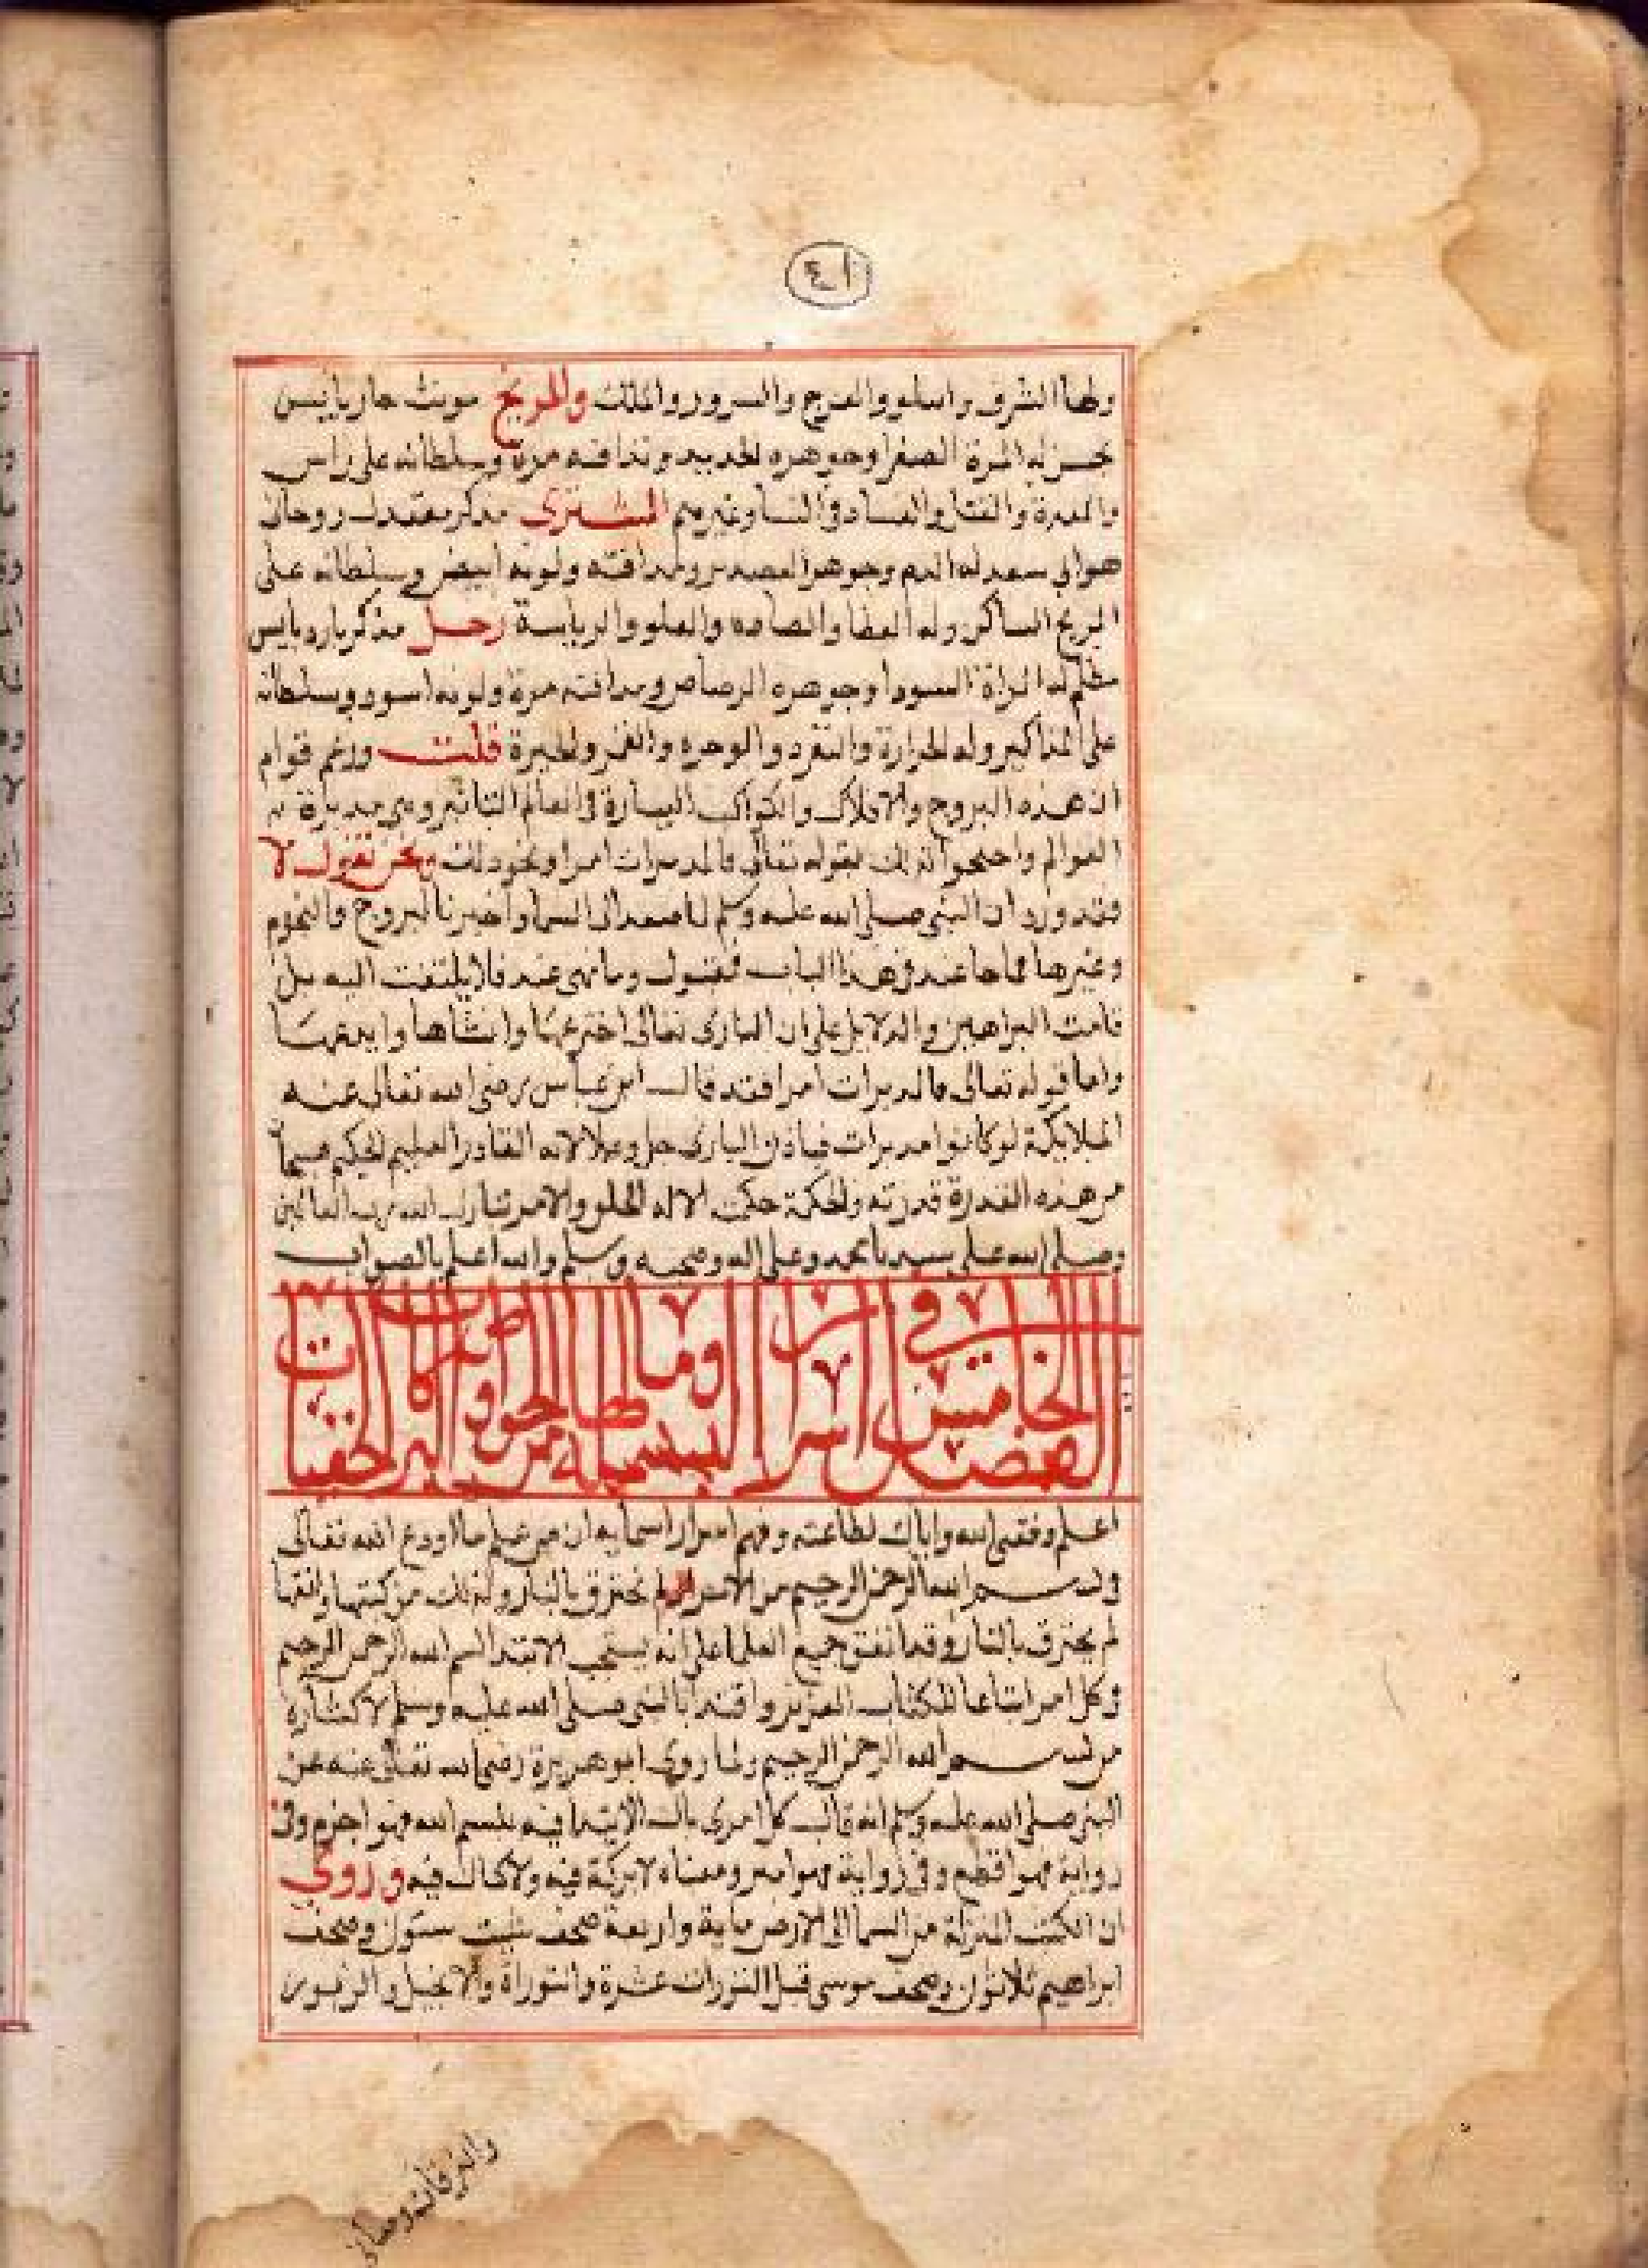 ٤١
ولها الشرف والعلو والفرح والسرور والملك والمريخ مونث حار يابس
نحس له المرة الصفرا وجوهره الحديد ومذاقته مرة وسلطانه على راس
والمعدة والقتل والفساد في النسا وغيرهم المشترى مذكر معتدل روحاني
هواي سعد له الدم وجوهره ومذاقته ولونه ابيض وسلطانه على
الريح الساكن وله القضا والعلو والرياسة زحل مذكر بارد يابس
مظلم له المراة السودا وجوهره الرصاص ومذاقته مرة ولونه اسود وسلطانه
على المذاكير وله الحرارة والتفرد والوحده والحيرة قلت وزعم قوام
ان هذه البروج والافلاك والكواكب السيارة في العالم التاثير وهي مدبرة له
العوالم واحتجوا لذلك بقوله تعالى فالمدبرات امرا ونحو ذلك ونحن نقول لا
وقد ورد ان النبي صلى الله عليه وسلم لما صعد الى السما واخبرنا البروج والنجوم
وغيرها فما جا عنه في هذا الباب فقبول وما نهى عنه فلا يلتفت اليه بل
قامت البراهين والدلايل على ان البارى تعالى اخترعها وانشاها وابدعها
واما قوله تعالى فالمدبرات امرا فقد قال ابن عباس رضى الله تعالى عنه
الملايكة لو كانوا مدبرات فباذن البارى جل وعلا لانه القادر العليم الحكيم
من هذه القدرة قدرته والحكمة حكمته الا له الخلق والامر تبارك الله رب العالمين
وصلى الله على سيدنا محمد وعلى اله وصحبه وسلم والله اعلم بالصواب
الفصل الخامس في اسرار البسملة وما لها من الخواص والبركات الخفيات
اعلم وفقنى الله واياك لطاعته وفهم اسرار اسمايه ان من علم ما اودع الله تعالى
في بسم الله الرحمن الرحيم من الاسرار لم يحترق بالنار ولذلك من كتبها
لم يحترق بالنار وقد اتفق جميع العلما على انه يستحب الابتدا بسم الله الرحمن الرحيم
في كل امر اتباعا للكتاب العزيز واقتدا بالنبى صلى الله عليه وسلم لاكثاره
من بسم الله الرحمن الرحيم ولما روى ابو هريرة رضى الله تعالى عنه عن
النبى صلى الله عليه وسلم انه قال كل امر ذى بال لا يبتدا فيه ببسم الله فهو اجذم وفى
رواية فهو اقطع وفي رواية فهو ابتر ومعناه لا بركة فيه ولا كمال فيه وروى
ان الكتب المنزلة من السما الى الارض ماية واربعة صحف شيث ستون وصحف
ابراهيم ثلاثون وصحف موسى قبل التورات عشرة والتوراة والانجيل والزبور
والفرقان ومعانى